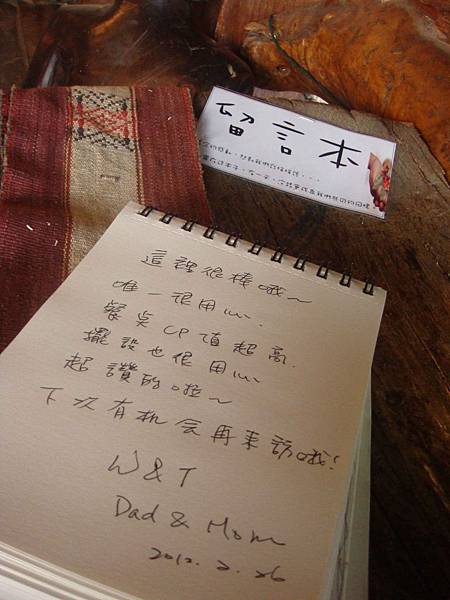 留言本
這裡很棒哦~
唯一很用心.
餐桌CP值超高.
擺設也很用心
超讚的啦~
下次有机会再來訪哦!
W&T
Dad & Mom
2010. 2. 26